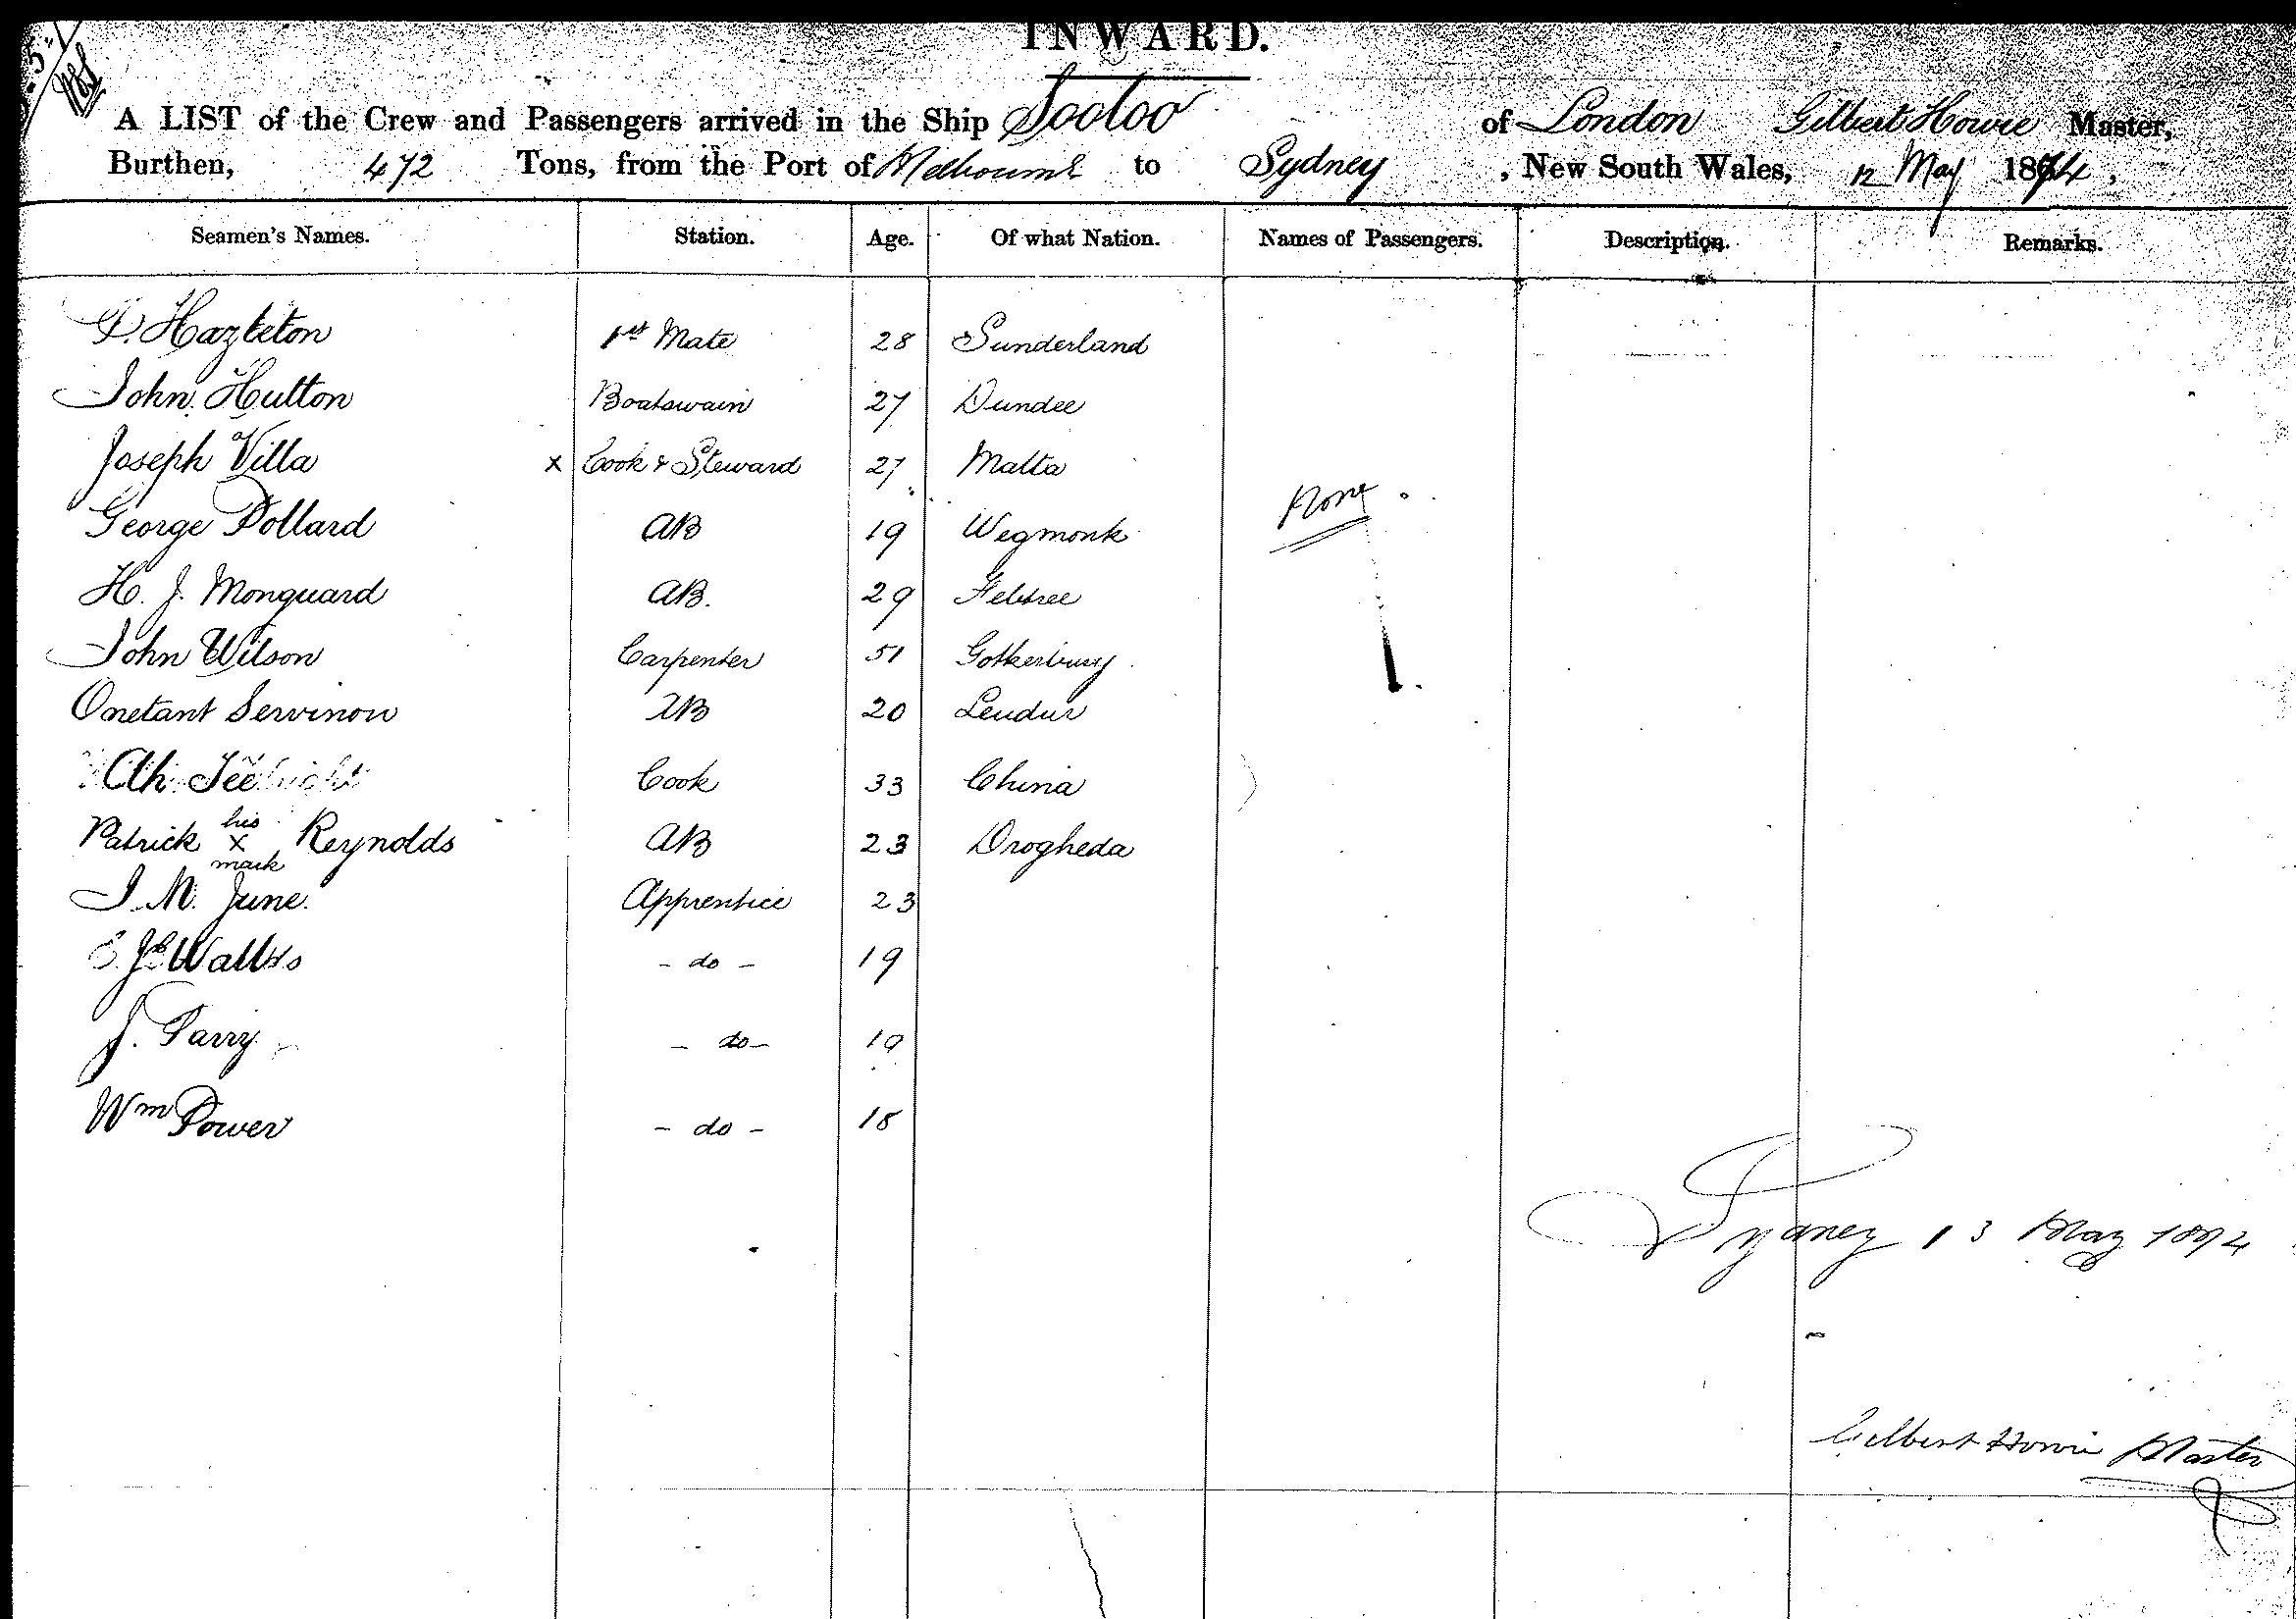 INWARD.
A LIST of the Crew and Passengers arrived in the Ship Sooloo of London Gilbert Howie Master,
Burthen, 472 Tons, from the Port of Melbourne to Sydney, New South Wales, 12 May 1874,
Seamen's Names. Station. Age. Of what Nation. Names of Passengers. Description. Remarks.
Hazleton 1st Mate 28 Sunderland
John Hutton Boatswain 27 Dundee
Joseph Villa x Cook & Steward 27 Malta
George Pollard AB 19 Wegmonk
None
H. J. Monguard AB. 29
John Wilson Carpenter 51
Onetant Servinow AB 20
Ah Tee Cook 33 China
Patrick his x mark Reynolds AB 23 Drogheda
J. M. June. Apprentice 23
- do - 19
J. Parry - do - 19
Wm Power - do - 18
Sydney 13 May 1874
Gilbert Howie Master